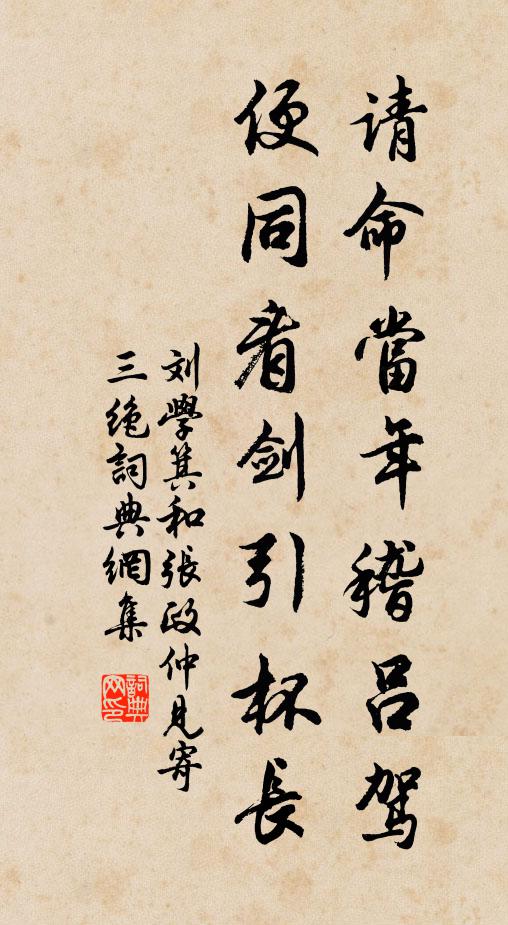 请命當年稽吕駕
便同看剑引杯長
刘學箕和張政仲見寄
三绝詞典網集
詞典網印